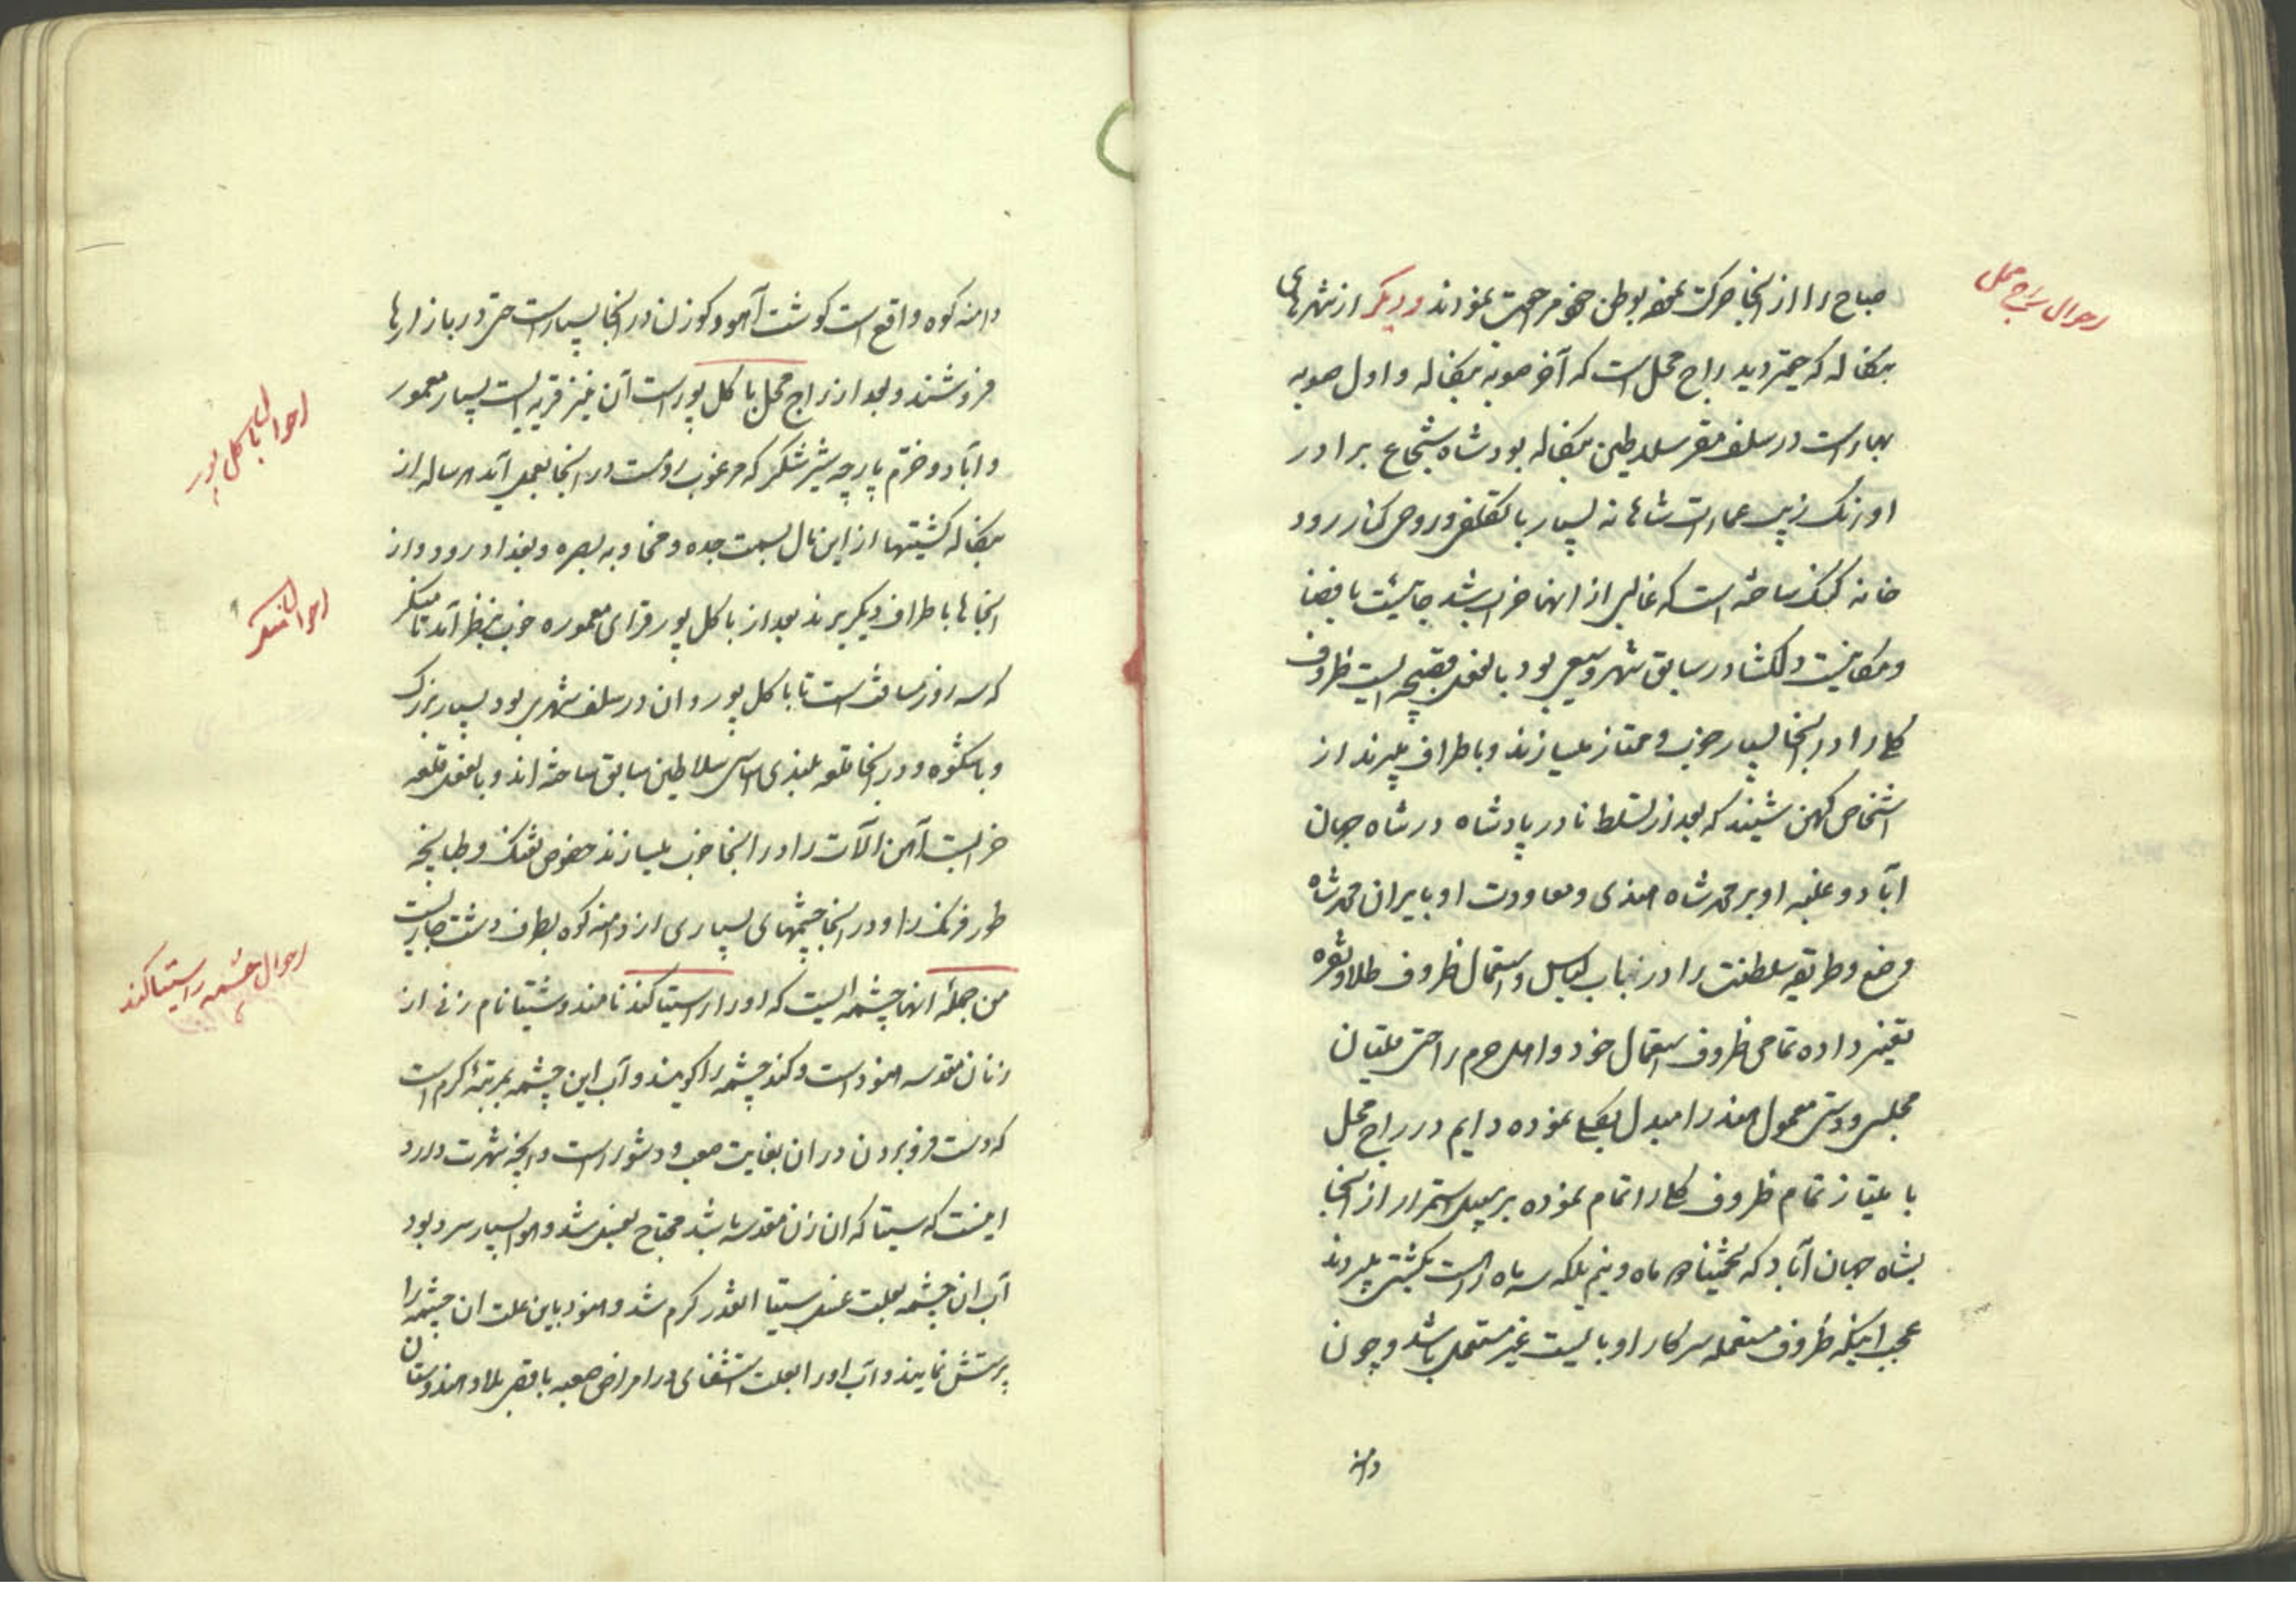 احوال راج محل
صباح را از آنجا حرکت نموده بوطن خود مراجعت نمودند و دیگر از شهرهای
بنکاله که حقیر دید راج محل است که آخر صوبه بنکاله و اول صوبه
بهار است در سلف مقر سلاطین بنکاله بود شاه شجاع برادر
اورنک زیب عمارات شاهانه بسیار با تکلف و روح کنار رود
خانه کنک ساخته است که غالبی از انها خراب شد جائیست با فضا
و مکانیست دلکشا در سابق شهر وسیعی بود بالفعل قصبچه ایست ظروف
کلی را در آنجا بسیار خوب و ممتاز میسازند و باطراف میبرند از
اشخاص کهن شنیدم که بعد از تسلط نادر پادشاه در شاه جهان
آباد و غلبه او بر محمد شاه هندی و معاودت او بایران محمد شاه
وضع و طریقه سلطنت را در باب لباس و استعمال ظروف طلا و نقره
تغییر داده تمامی ظروف استعمال خود و اهل حرم را حتی
مجلس و دستی معمول هند را مبدل بکلی نموده دایم در راج محل
با امتیاز تمام ظروف کلی را اتمام نموده بر سبیل استمرار از آنجا
بشاه جهان آباد که تخمینا دو ماه و نیم بلکه سه ماه راه است بکشتی میبردند
عجب اینکه ظروف مستعمله سرکار او بایست غیر مستعمل باشد و چون
دامنه
دامنه کوه واقع است کوشت آهو و کوزن در آنجا بسیار است حتی در بازارها
فروشند و بعد از راج محل باکل پور است آن نیز قریه ایست بسیار معمور
احوال باکل پور
و آباد و خرم پارچه شیر شکر که مرغوب است در آنجا بعمل آید هر ساله از
بنکاله کشتیها از این مال بسمت جده و مخا و به بصره و بغداد رود و از
آنجا ها باطراف دیکر برند بعد از باکل پور قرای معموره خوب بنظر آمد تا منکر
احوال منکر
که سه روز مسافت است تا باکل پور و ان در سلف شهری بود بسیار بزرک
و با شکوه و در آنجا قلعه بلندی اساس سلاطین سابق ساخته اند و بالفعل قلعه
خرابست آهن آلات را در آنجا خوب میسازند خصوص تفنک و طپانچه
طور فرنک را و در آنجا چشمهای بسیاری از دامنه کوه بطرف دشت جاریست
احوال چشمه راسیتاکند
من جمله انها چشمه ایست که او را راسیتاکند نامند و سیتا نام زنی از
زنان مقدسه هنود است و کند چشمه را کویند و آب این چشمه بمرتبۀ کرم است
که دست فرو بردن در ان بغایت صعب و دشوار است و آنچه شهرت دارد
اینست که سیتا که ان زن مقدسه باشد محتاج بغسل شد و هوا بسیار سرد بود
آب ان چشمه بعلت غسل سیتا انقدر کرم شد و هنود باین علت ان چشمه را
پرستش نمایند و آب او را بعلت استشفای در امراض صعبه باقصی بلاد هندوستان